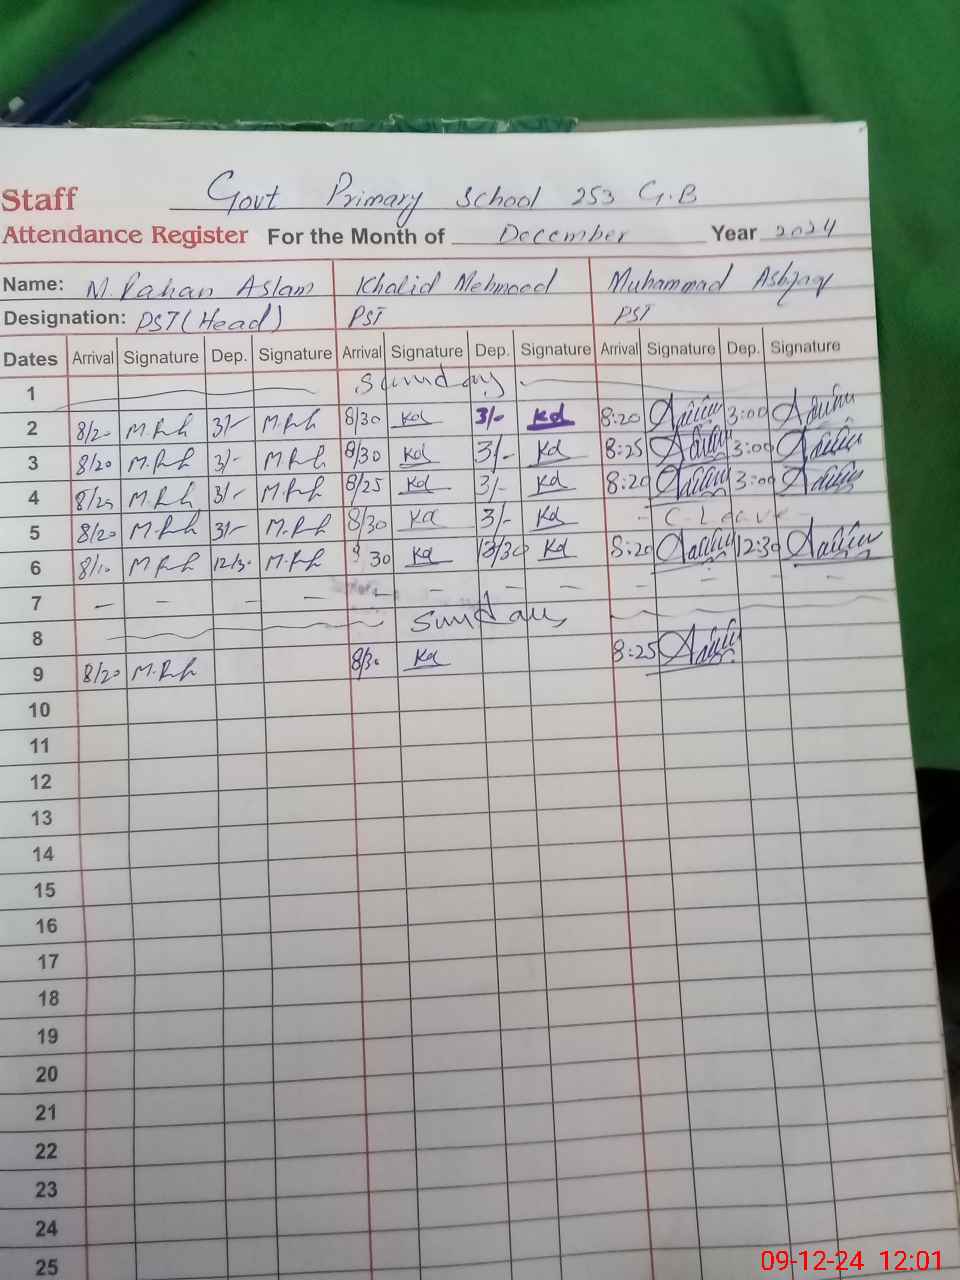 Staff Govt Primary School 253 G.B
Attendance Register For the Month of December Year 2024
Name: M. Aslam Khalid Mehmood Muhammad Ashfaq
Designation: PST (Head) PST PST
Dates Arrival Signature Dep. Signature Arrival Signature Dep. Signature Arrival Signature Dep. Signature
1 Sunday
2 8/20 3/- 8/30 Kd 3/- Kd 8:20 3:00
3 8/20 3/- 8/30 Kd 3/- Kd 8:25 3:00
4 8/20 3/- 8/25 Kd 3/- Kd 8:20 3:00
5 8/20 3/- 8/30 Kd 3/- Kd - C-Leave -
6 8/10 12/30 30 Kd Kd 8:20 12:30
7 - - - - - - - - - - - -
8 Sunday
9 8/20 8/30 Kd 8:25
10
11
12
13
14
15
16
17
18
19
20
21
22
23
24
25
09-12-24 12:01